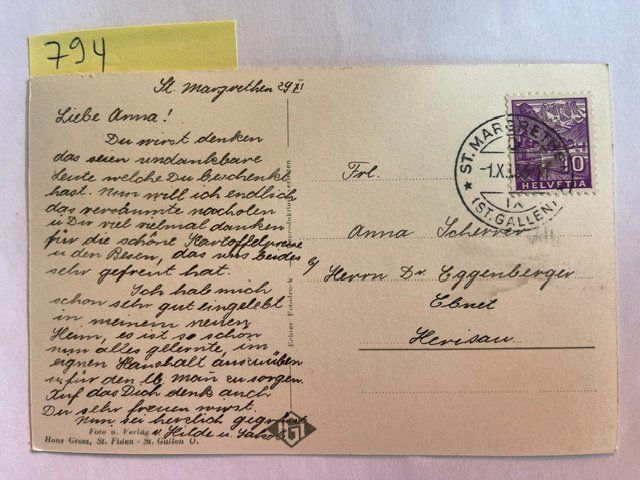 794
St. Margrethen 29 XI
Liebe Anna!
Du wirst denken
das seien undankbare
Leute welche Du beschenkt
hast. Nun will ich endlich
das versäumte nachholen
u Dir viel vielmal danken
für die schöne Kartoffelpresse
u den Besen, das uns beides
sehr gefreut hat.
Ich hab mich
schon sehr gut eingelebt
in meinem neuen
Heim, es ist so schön
nun alles gelernte, im
eignen Haushalt auszuüben
u für den lb. Mann zu sorgen.
Auf das Dich denk auch
Du sehr freuen wirst.
Nun sei herzlich gegrüsst
v. Hilde u.
Foto u. Verlag
Hans Gross, St. Fiden - St. Gallen O.
Echter Fotodruck
ST. MARGRETHEN
(ST. GALLEN)
10
HELVETIA
Frl.
Anna Scherrer
c/o Herrn Dr. Eggenberger
Ebnet
Herisau